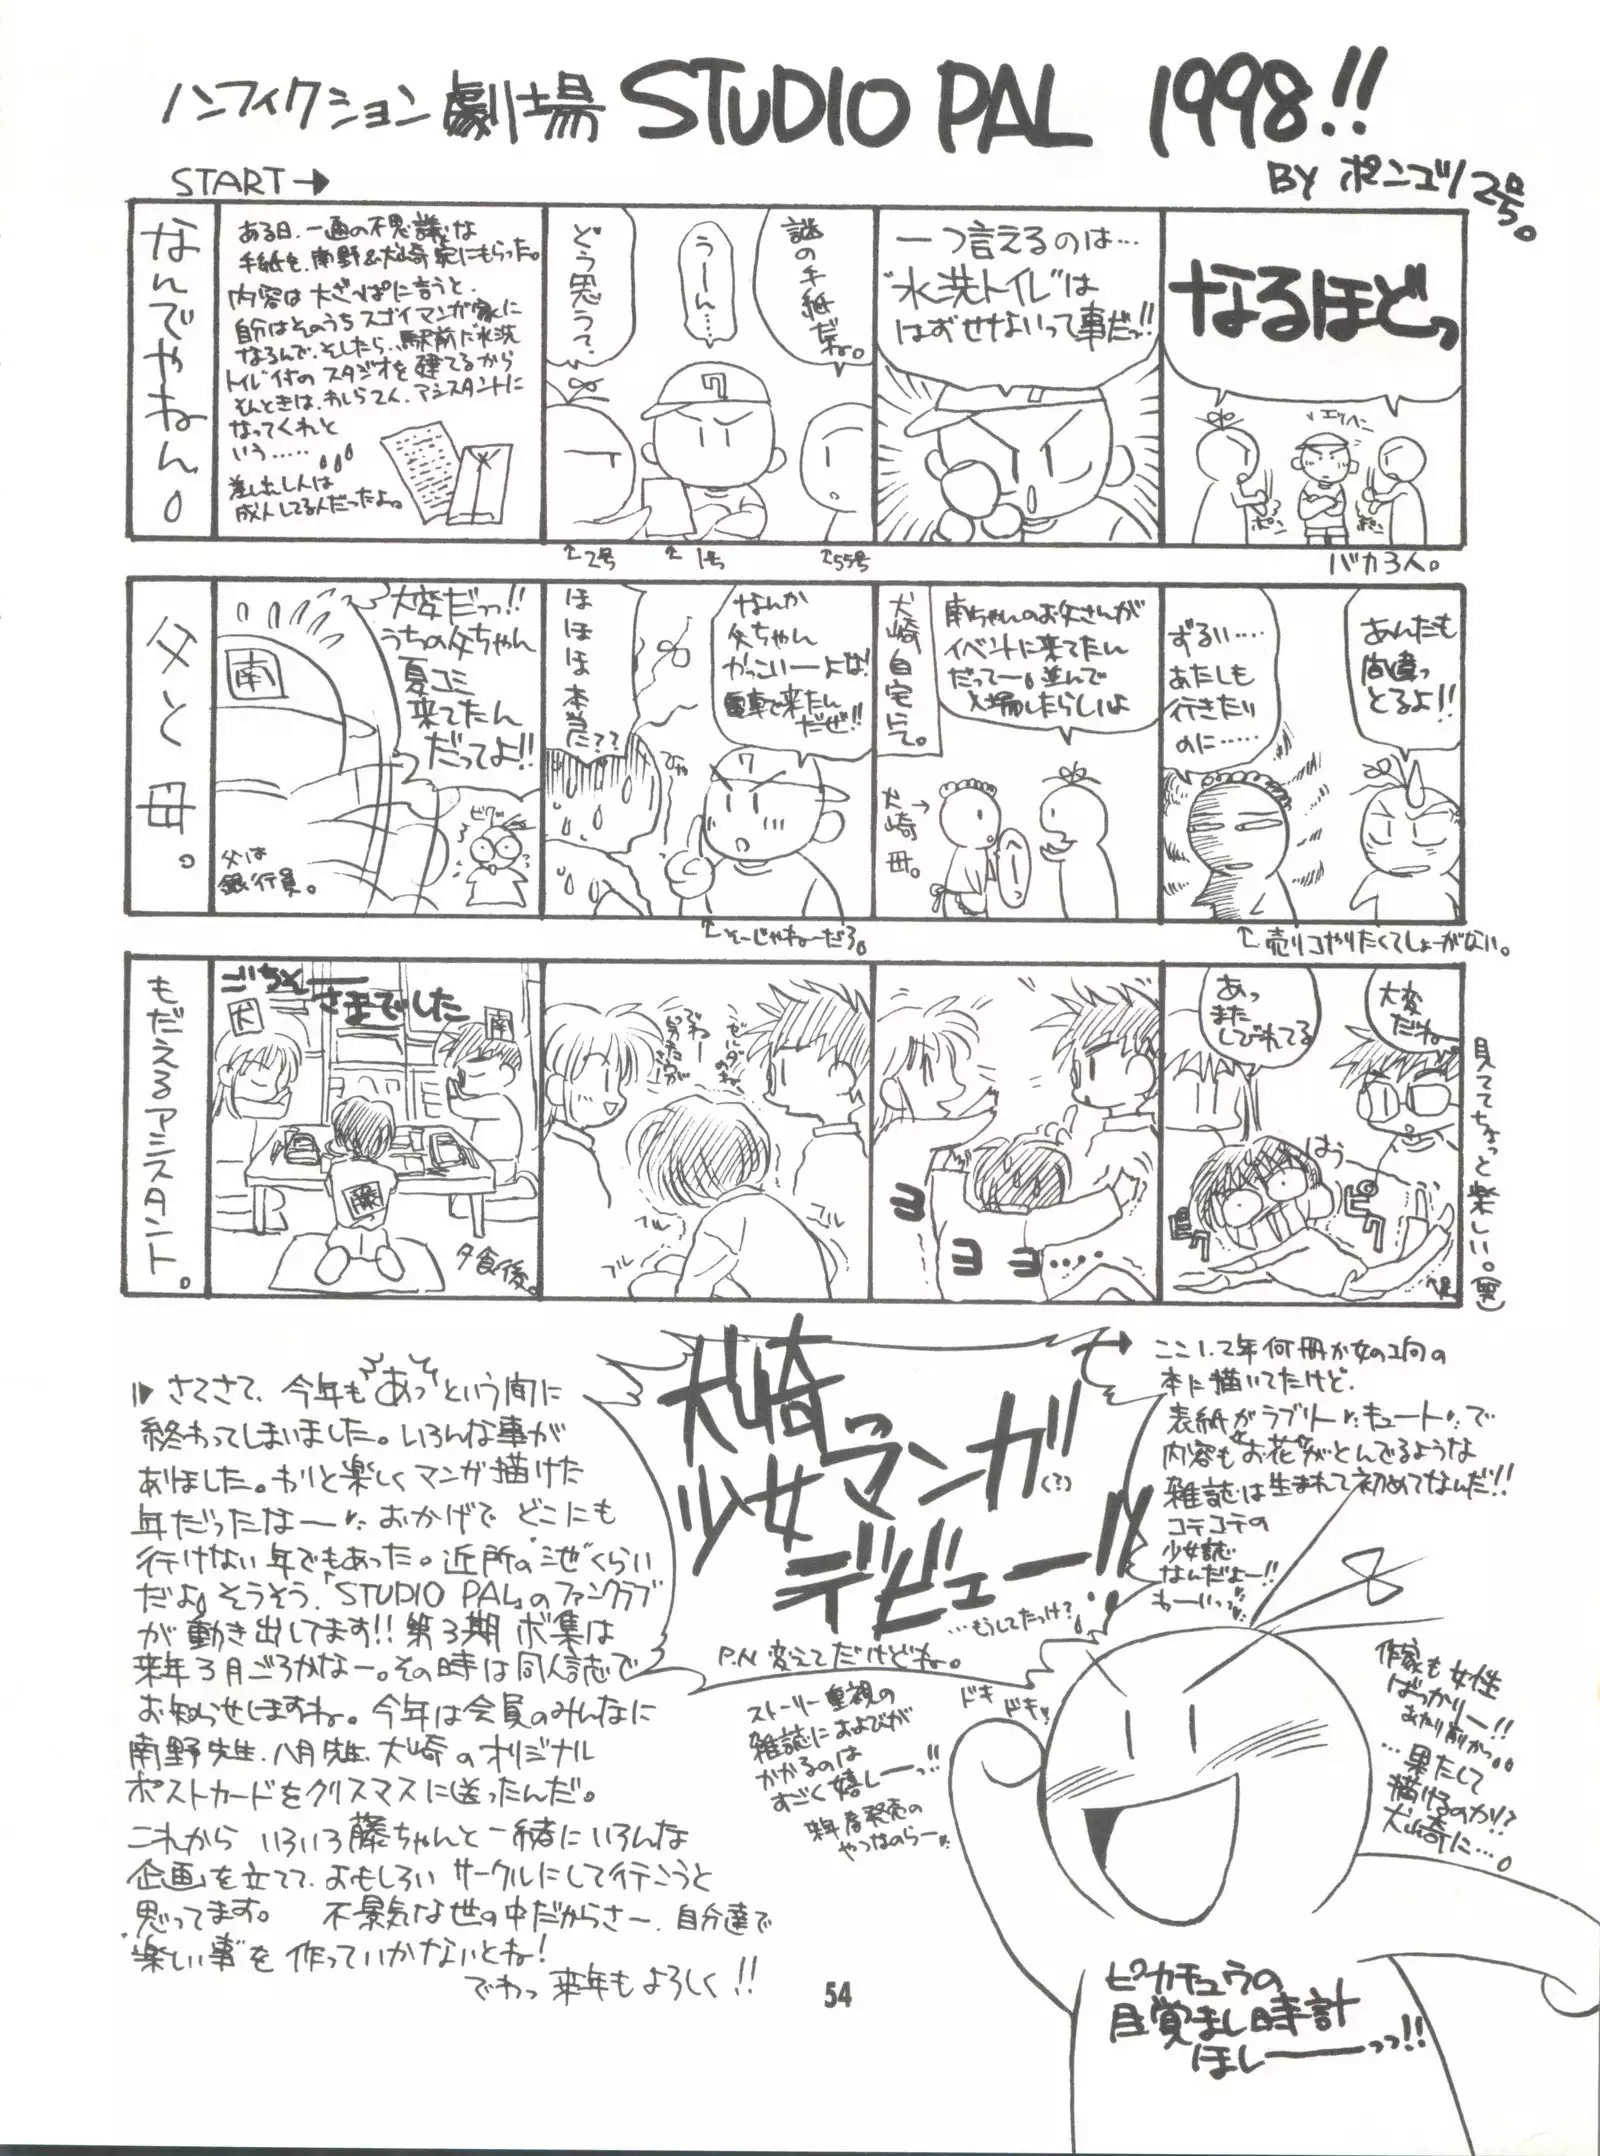 ノンフィクション劇場 STUDIO PAL 1998!!
BY ポンコツ2号。
START→
なんでやねん。
ある日、一通の不思議な
手紙を、南野&犬崎家にもらった。
内容は大ざっぱに言うと、
自分はそのうちスゴイマンガ家に
なるんで、そしたら、駅前に水洗
トイレ付のスタジオを建てるから
そんときは、
アシスタントに
なってくれと
いう……
差し出し人は
成人してる人だったよ。
謎の手紙だね。
うーん……
どう思うて、
↑2号
↑1号
↑55号
一つ言えるのは…
"水洗トイレ"は
はずせないって事だっ!!
なるほどっ
エッヘン
バカ3人。
父と母。
南
大変だっっ!!
うちの父ちゃん
夏コミ
来てたん
だってよ!!
ビクッ
父は
銀行員。
なんか
父ちゃん
かっこいーよな!
電車で来たん
だぜ!!
ほほほ本当に??
↑そーじゃねーだろ。
犬崎自宅にて。
南ちゃんのお父さんが
イベントに来てたん
だってー。並んで
入場したらしいよ
犬崎母。
へーっ
あんたも
間違っ
とるよ!!
ずるい……
あたしも
行きたい
のに……
↑売り子やりたくてしょーがない。
もだえるアシスタント。
ごちそーさまでした
犬
南
藤
夕食後。
ゴル
ゴル
ヨ
ヨ
ヨ…
あっ
また
しびれてる
大変
だね
はう
ピク
ピク
見ててちょっと楽しい。(笑)
さてさて、今年もあっという間に
終わってしまいました。いろんな事が
ありました。わりと楽しくマンガ描けた
年だったなー おかげでどこにも
行けない年でもあった。近所の池くらい
だよ。そうそう、「STUDIO PAL」のファンクラブ
が動き出してます!! 第3期ボ集は
来年3月ごろかなー。その時は同人誌で
お知らせしますね。今年は会員のみんなに
南野先生、八月先生、犬崎のオリジナル
ポストカードをクリスマスに送ったんだ。
これから いろいろ藤ちゃんと一緒にいろんな
企画を立てて、おもしろいサークルにして行こうと
思ってます。 不景気な世の中だからさー、自分達で
楽しい事を作っていかないとね!
でわっ来年もよろしく!!
犬崎
少女マンガ(?)
デビュー!!
…もうしてたっけ?
P.N変えてだけどね。
ここ1、2年何冊か女のコ向の
本に描いてたけど、
表紙がラブリーキュートで
内容もお花がとんでるような
雑誌は生まれて初めてなんだ!!
コテコテの
少女誌
なんだよー!!
わーいっっ
ストーリー重視の
雑誌におよびが
かかるのは
すごく嬉しーっ!!
来年春発売の
やつなのらー
ドキ
ドキッ
作家も女性
ばっかりー!!
あたり前かっ。。
…果たして
描けるのか!?
犬崎に…。
ピカチュウの
目覚まし時計
ほしーーーっっ!!
54